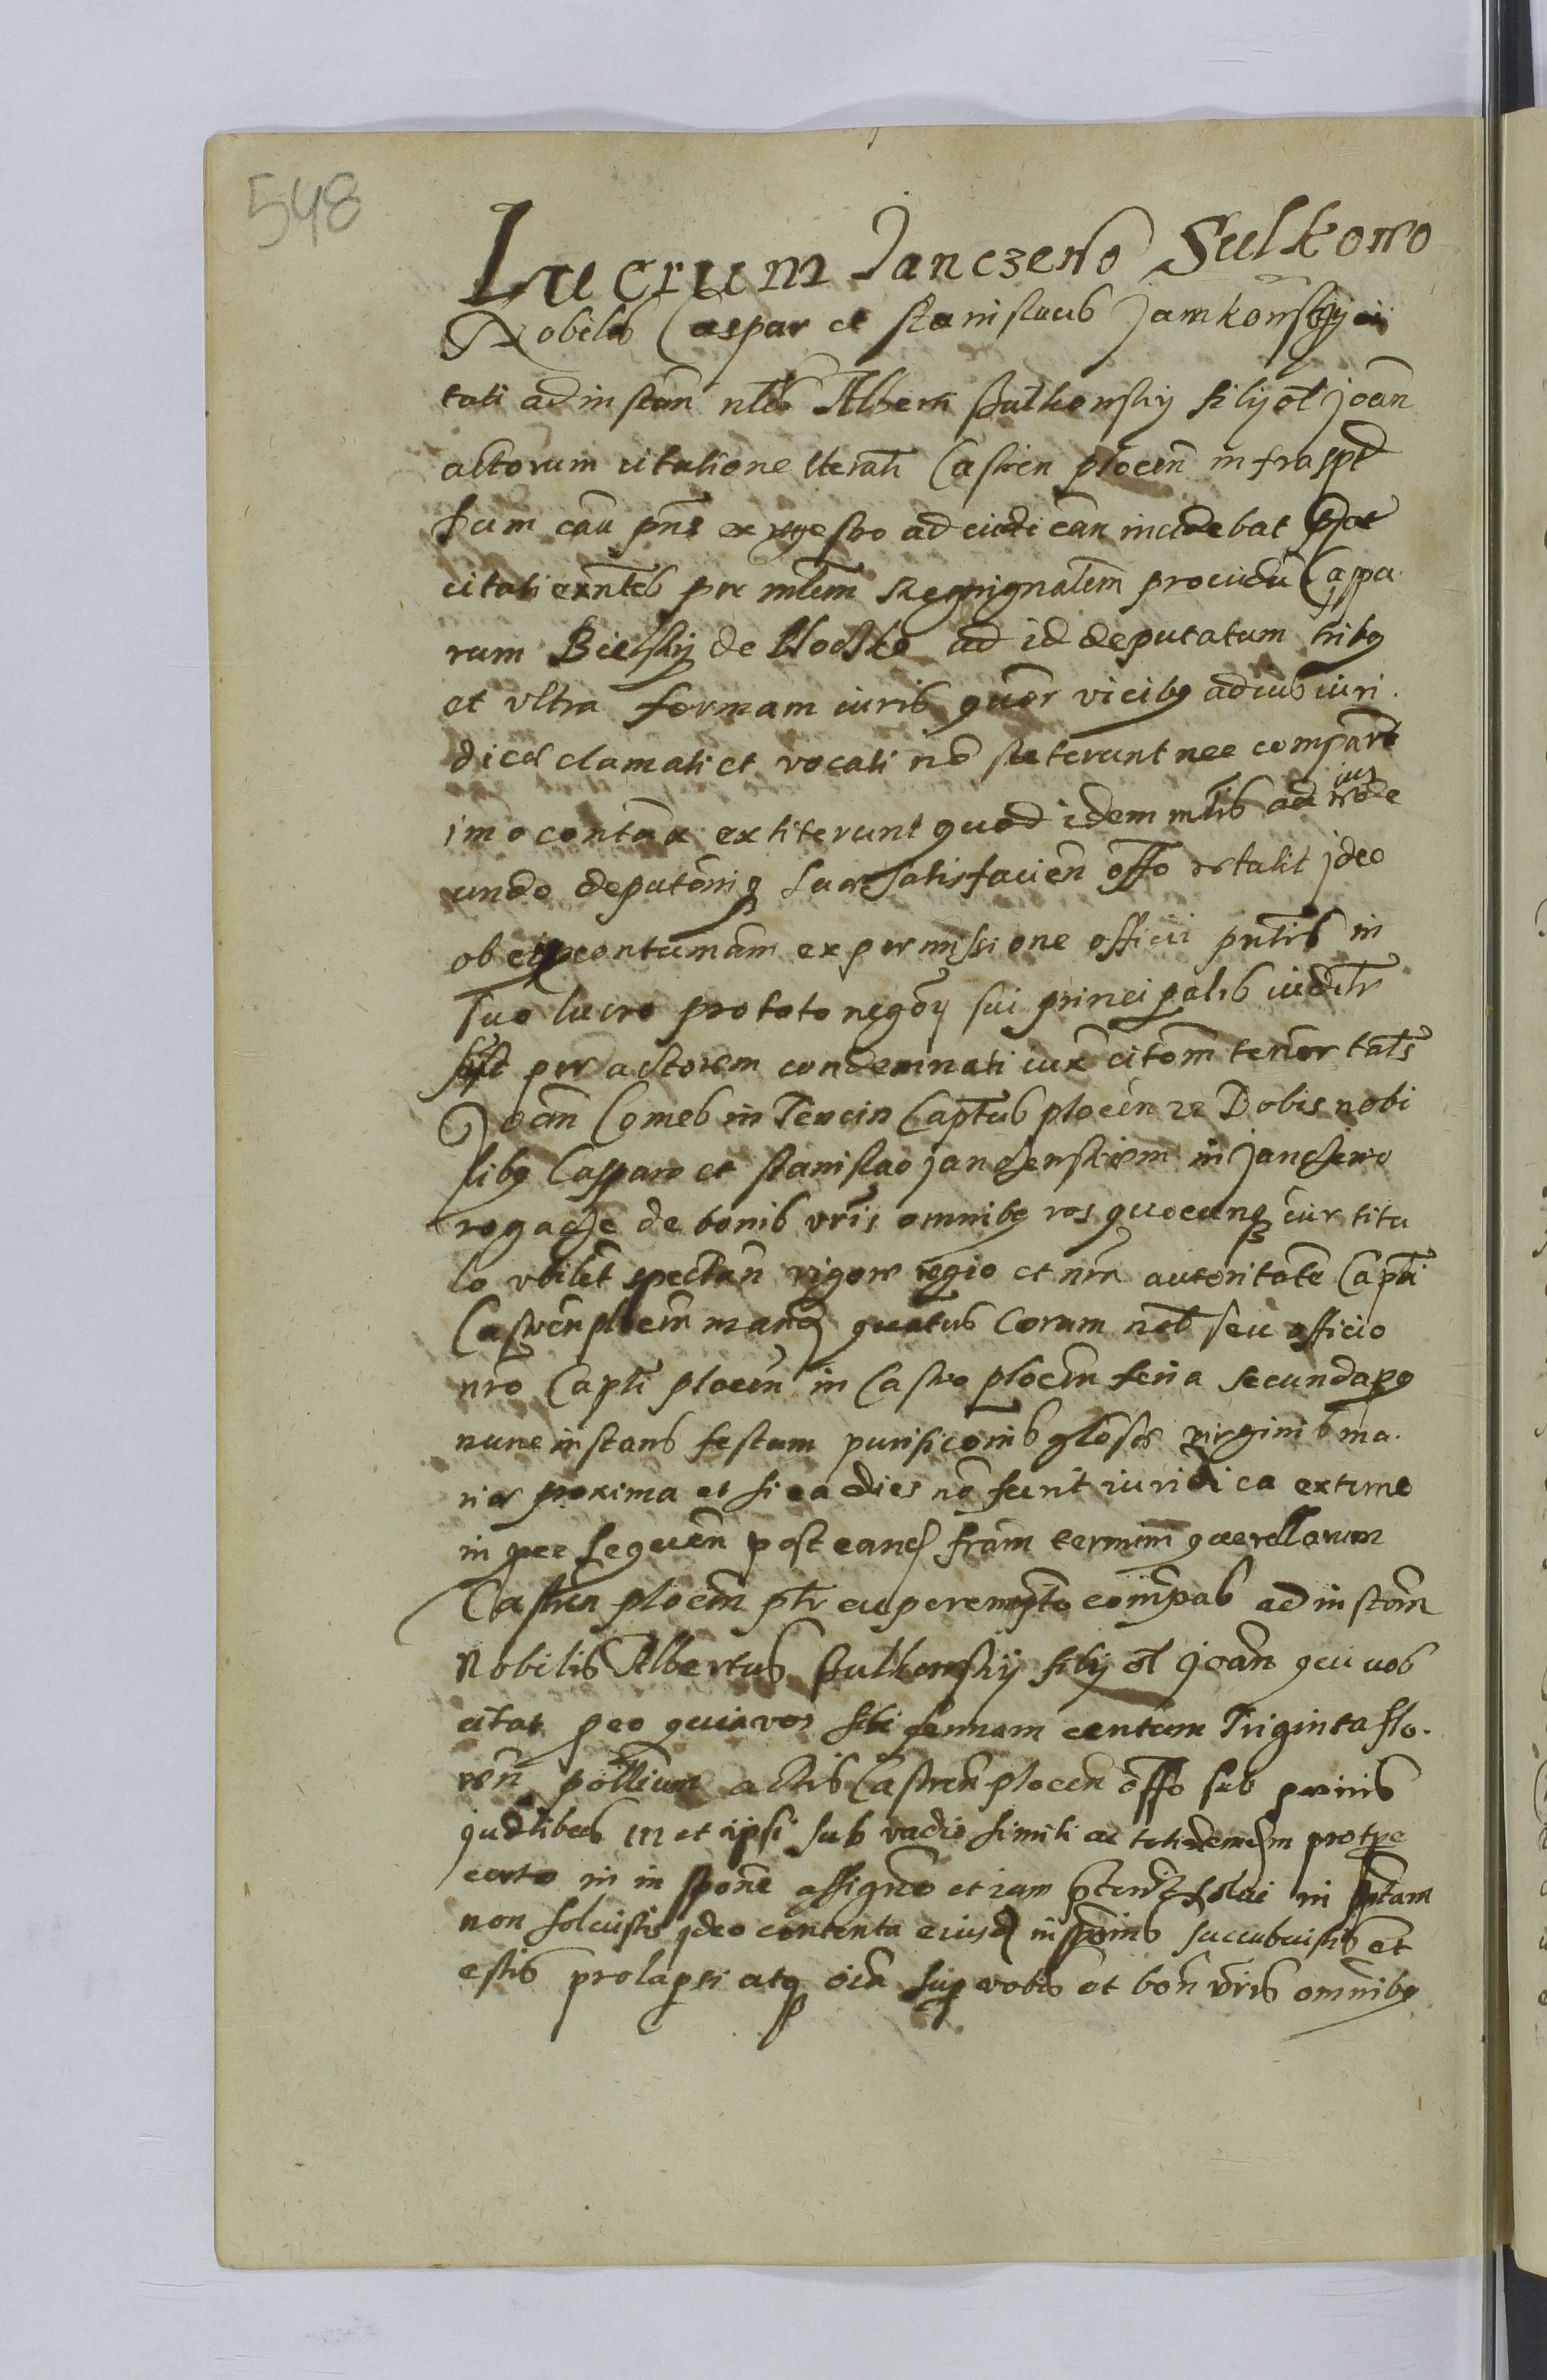 548
Lucrum Janczewo Sulkowo
Nobiles Caspar et Stanislaus Jamkowskÿ ci
tati ad instan nlis Alberti Sulkowskÿ filÿ ol Joan
actorum citatione lterali Castren plocen infra spt
dum cau pns ex regestro ad iudi can incidebat
citati exntes per mlem Regnignalem providu Caspa
rum Bielskÿ de ad id deputatum tribq
et vltra formam iuris quor vicibq adeius iuri
dice clamati et vocati no steterunt nec compart
imo contuax extiterunt quod idem mlis ad ius redde
undo deputoniq suae satisfacien offo retulit jdeo
ob eorq contumam ex permissione officii pntis in
suo lucro pro toto negoÿ sui principalis iudltr
sut per actorem condemnati iux citom tenor talis
Joan Comes in Tencin Captus plocen vobis nobi
libq Casparo et Stanislao janczewskiem in janczewo
rogacze de bonis vris omnibq vos quocunq iur titu
lo vbilet spectan vigore regio et nra autoritate Capti
Castren plocen mandq quatus coram nob seu officio
nro Capti plocen in Castro plocen feria secunda pq
nunc instans festum purificonis glosae virginis ma
riae proxima et si ea dies no fuerit iuridica extunc
in sequen post eand fram termin querellarum
Castren plocen ptr ac peremto compas ad instam
Nobilis Albertus Sulkowskÿ filÿ ol Joan qui vos
citat peo quia vos sibi summam centum Triginta flo
ren pollium actis Castren plocen offo sub poenis
qudlibus in et ipsi sub vadio simili ac totidem
certo in in spone assignto et iam solui in
non soluistis jdeo contenta eiusd in spoinis succubuistis et
estis prolapsi atq oia sup vobis et bon vris omnibq